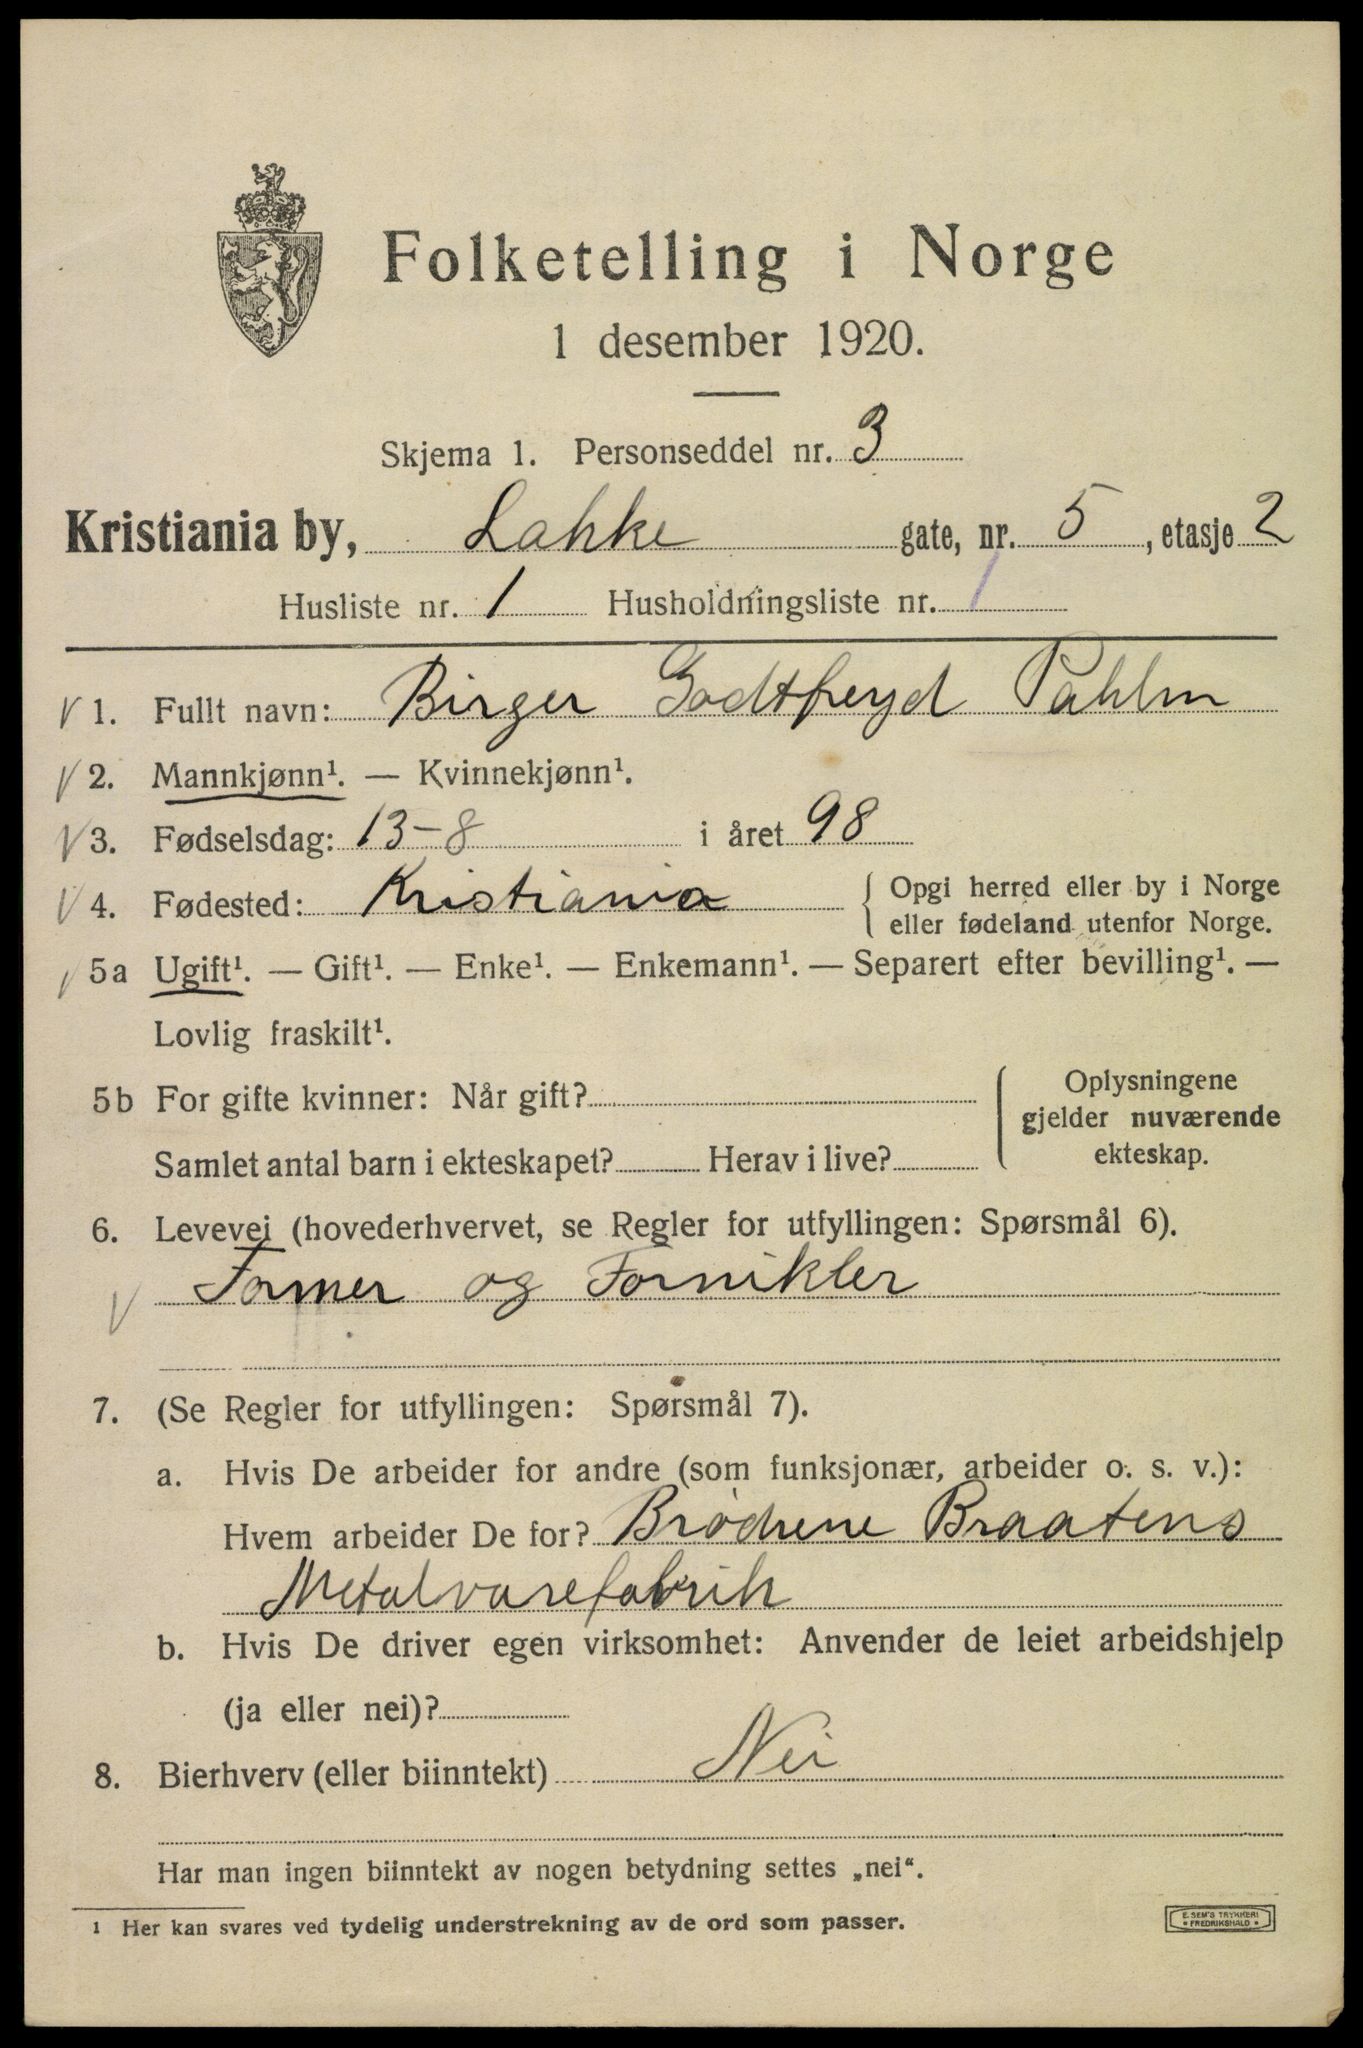 Folketelling i Norge
1 desember 1920.
Skjema 1. Personseddel nr. 3
Kristiania by, Lakke gate, nr. 5, etasje 2
Husliste nr. 1 Husholdningsliste nr. 1
1. Fullt navn: Birger Godtfreyd Pahlm
2. Mannkjønn¹. — Kvinnekjønn¹.
3. Fødselsdag: 13-8 i året 98
4. Fødested: Kristiania { Opgi herred eller by i Norge
eller fødeland utenfor Norge.
5a Ugift¹. — Gift¹. — Enke¹. — Enkemann¹. — Separert efter bevilling¹. —
Lovlig fraskilt¹.
5b For gifte kvinner: Når gift?
Samlet antal barn i ekteskapet? Herav i live?
{ Oplysningene
gjelder nuværende
ekteskap.
6. Levevei (hovederhvervet, se Regler for utfyllingen: Spørsmål 6).
Former og Fornikler
7. (Se Regler for utfyllingen: Spørsmål 7).
a. Hvis De arbeider for andre (som funksjonær, arbeider o. s. v.):
Hvem arbeider De for? Brödrene Braatens
Metalvarefabrik
b. Hvis De driver egen virksomhet: Anvender de leiet arbeidshjelp
(ja eller nei)?
8. Bierhverv (eller biinntekt) Nei
Har man ingen biinntekt av nogen betydning settes „nei".
1 Her kan svares ved tydelig understrekning av de ord som passer.
E. SEM'S TRYKKERI
FREDRIKSHALD